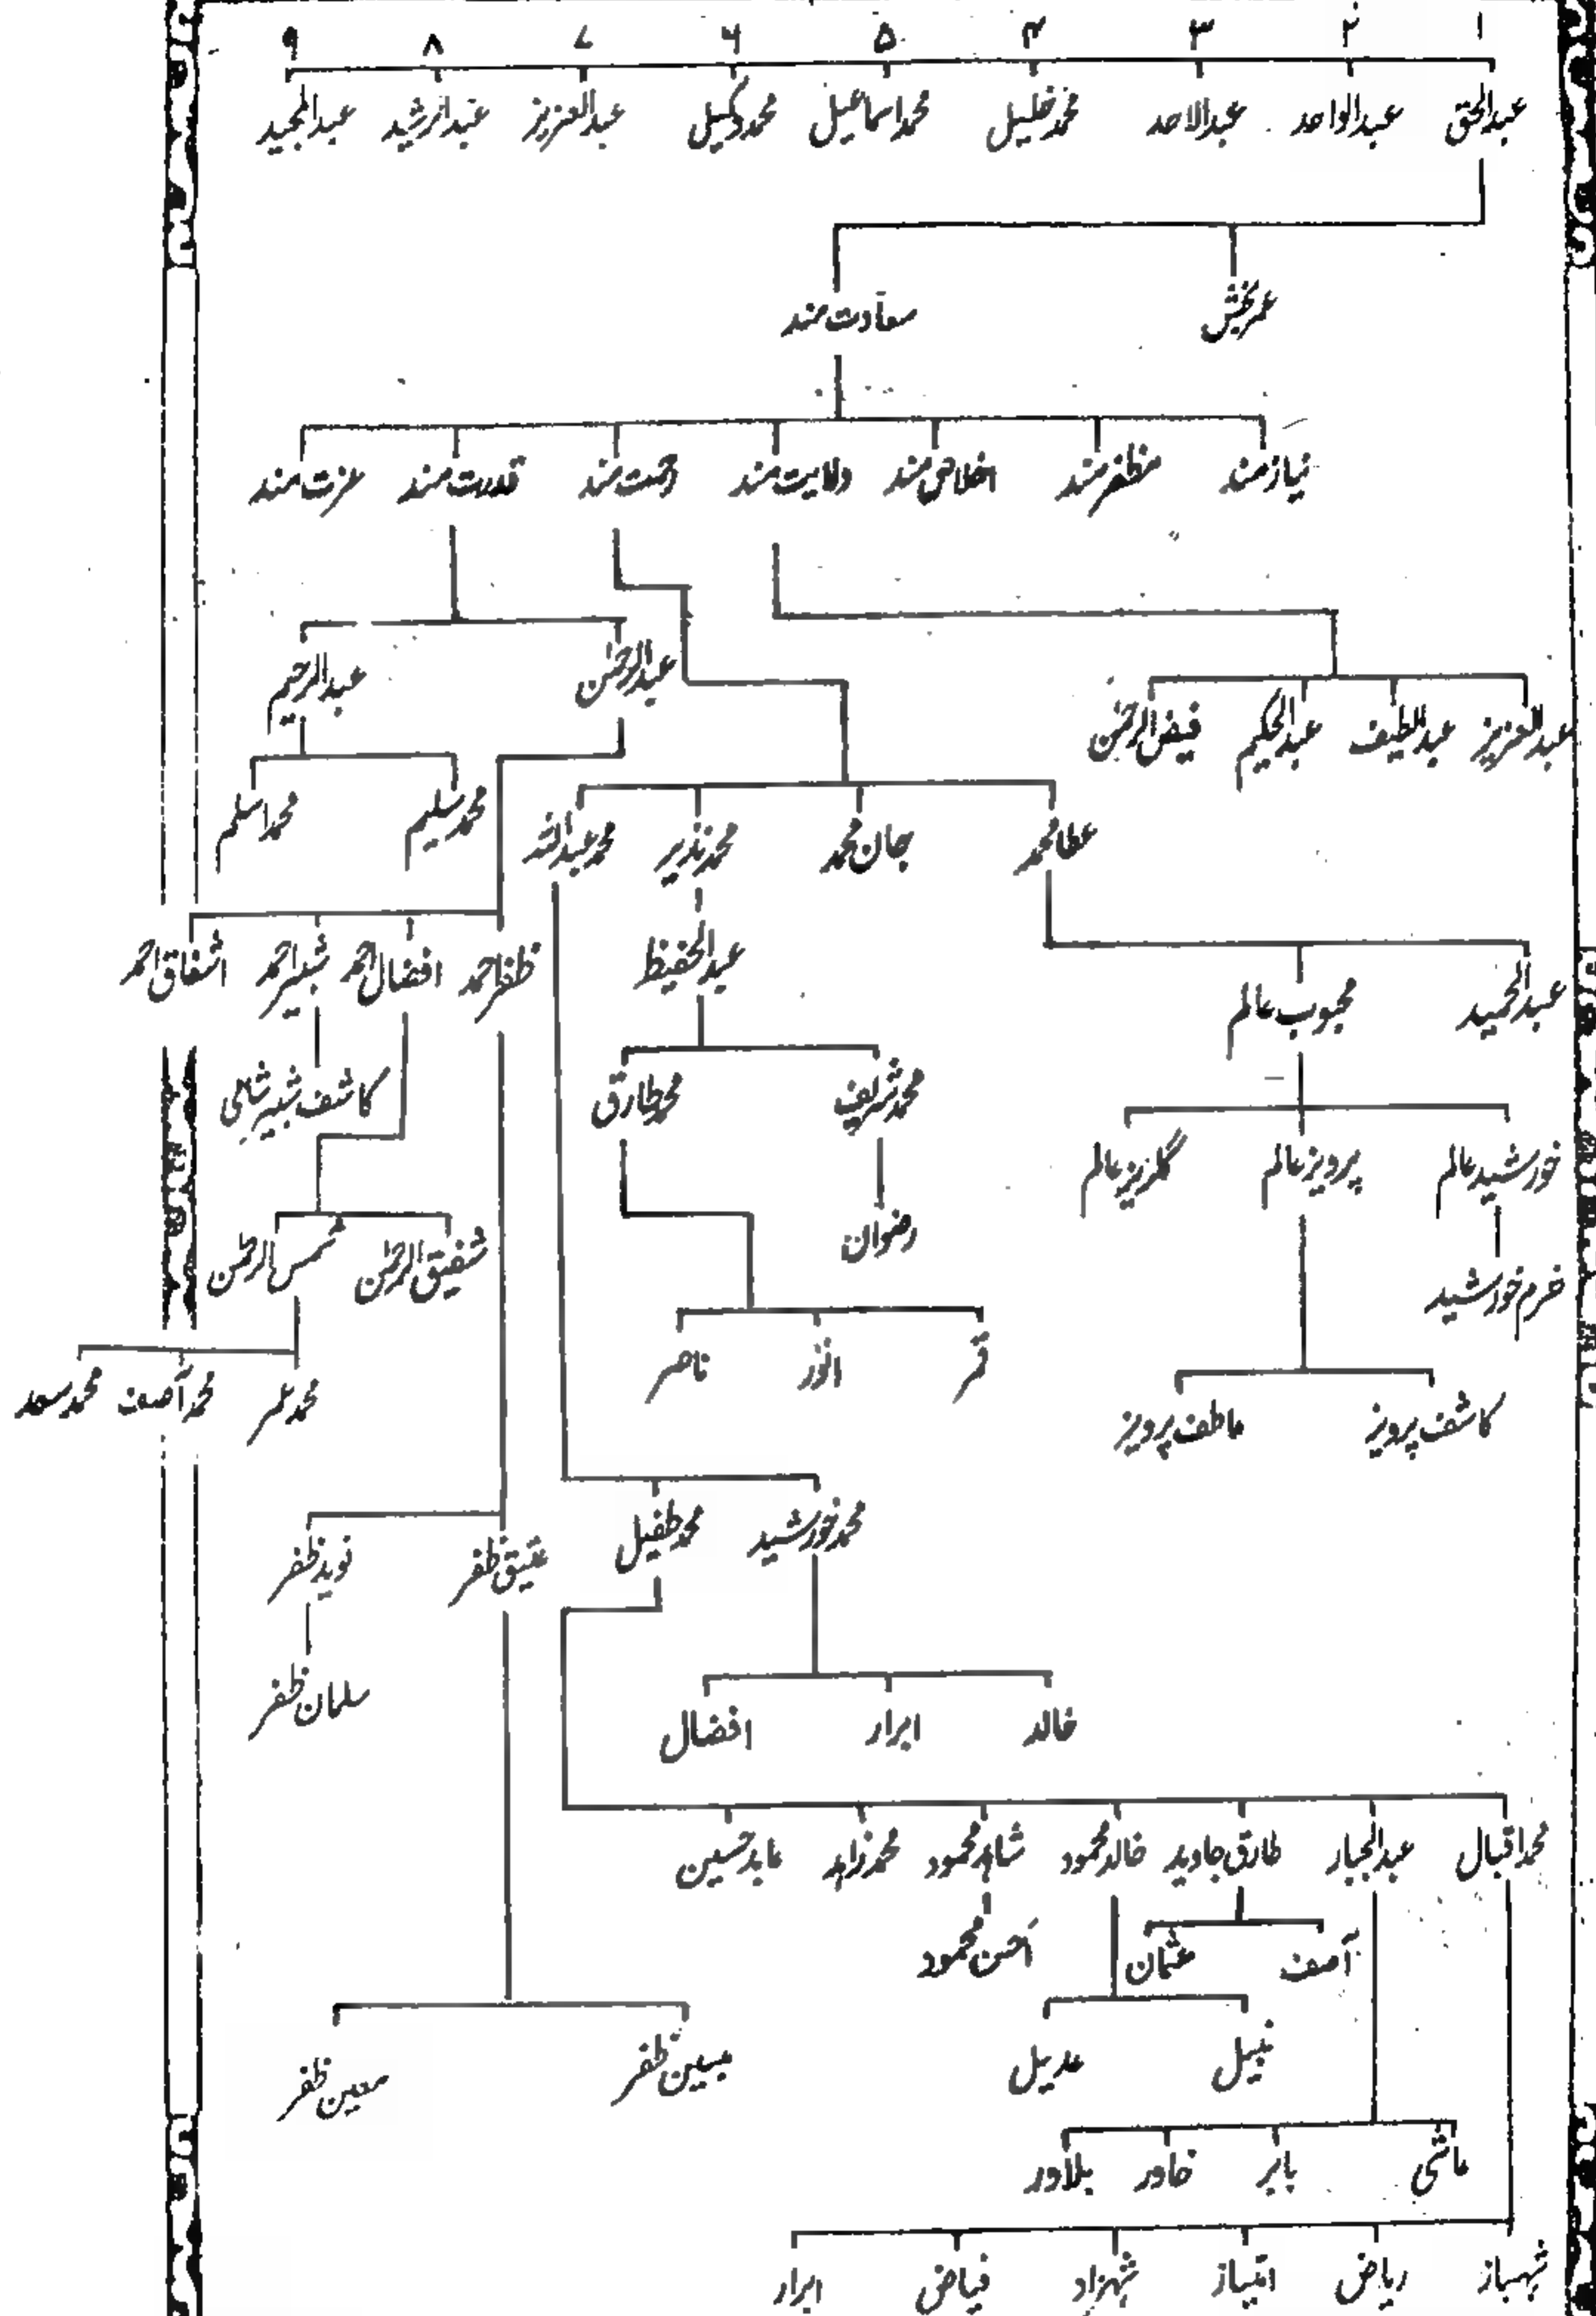 ۱ ۲ ۳ ۴ ۵ ۶ ۷ ۸ ۹
عبدالحق عبدالواحد عبدالاحد محمد خلیل محمد اسماعیل محمد وکیل عبدالعزیز عبدالرشید عبدالمجید
عمر بخش سعادت مند
نیاز مند مظفر مند اخلاص مند ولایت مند رحمت مند قدرت مند عزت مند
عبدالرحمٰن عبدالرحیم
عبدالعزیز عبدالطیف عبدالحکیم فیض الرحمٰن
عطا محمد جان محمد محمد نذیر محمد عبداللہ محمد سلیم محمد اسلم
عبدالحمید محبوب عالم عبدالحفیظ ظفر احمد افضال احمد شبیر احمد اشفاق احمد
محمد شریف محمد طارق کاشف شبیر شامی
خورشید عالم پرویز عالم گلریز عالم
رضوان شفیق الرحمٰن شمس الرحمٰن
خرم خورشید
قمر انور ناصر محمد عمر محمد آصف محمد سعد
کاشف پرویز عاطف پرویز
محمد خورشید محمد طفیل عتیق ظفر نوید ظفر
سلمان ظفر
خالد ابرار افضال
محمد اقبال عبدالجبار طارق جاوید خالد محمود شاہد محمود محمد زاہد عابد حسین
آصف عثمان احسن محمود
نبیل عدیل مبین ظفر معین ظفر
عاشی بابر خاور بلاور
شہباز ریاض امتیاز شہزاد فیاض ابرار